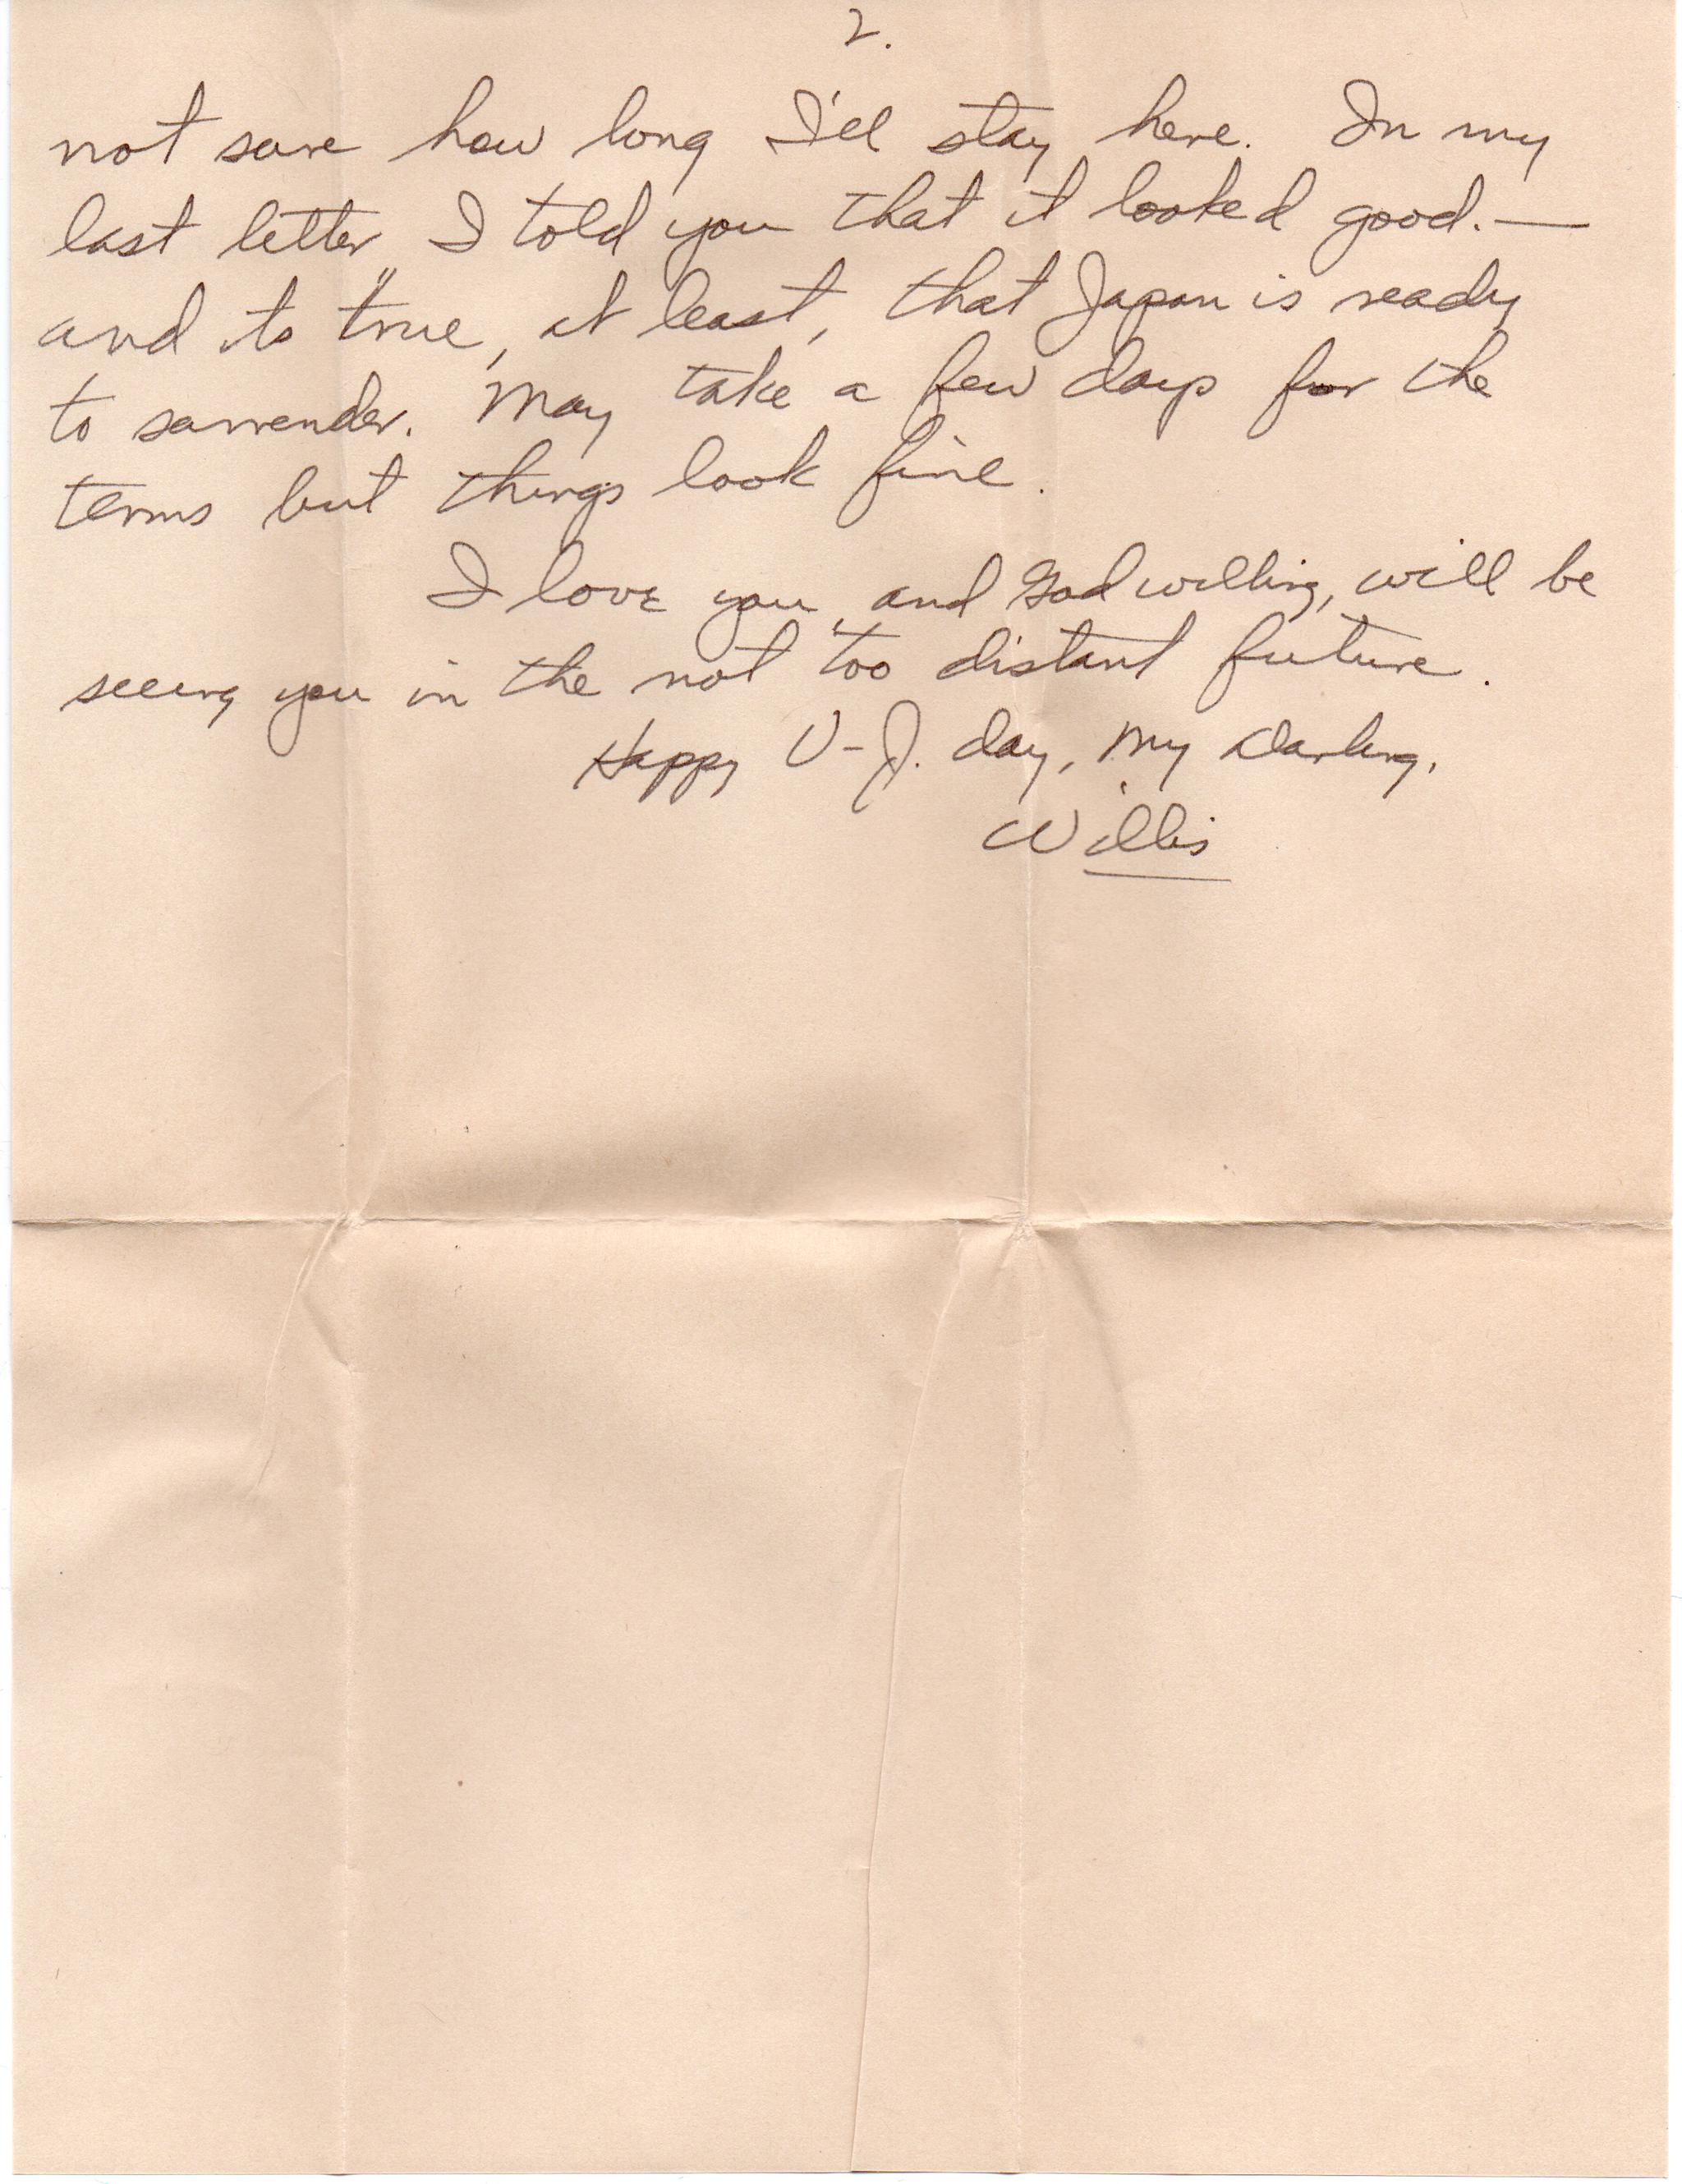 2.
not sure how long I'll stay here. In my
last letter I told you that it looked good. —
and its true, at least, that Japan is ready
to surrender. May take a few days for the
terms but things look fine.
I love you and God willing, will be
seeing you in the not too distant future.
Happy V-J. day, my Darling,
Willis